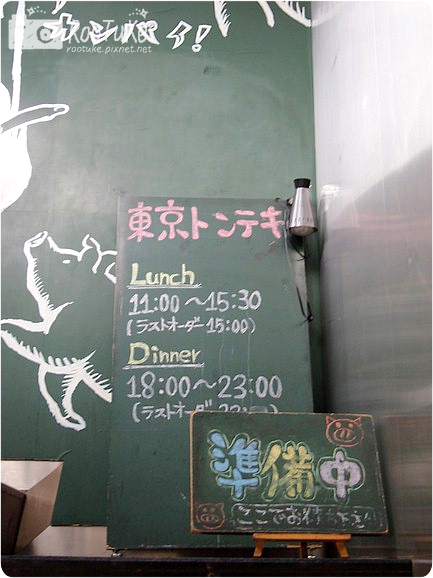 カンパイ!
RooTuKe
rootuke.pixnet.net
東京トンテキ
Lunch
11:00〜15:30
(ラストオーダー 15:00)
Dinner
18:00〜23:00
(ラストオーダー
準備中
ここでお待ち下さい